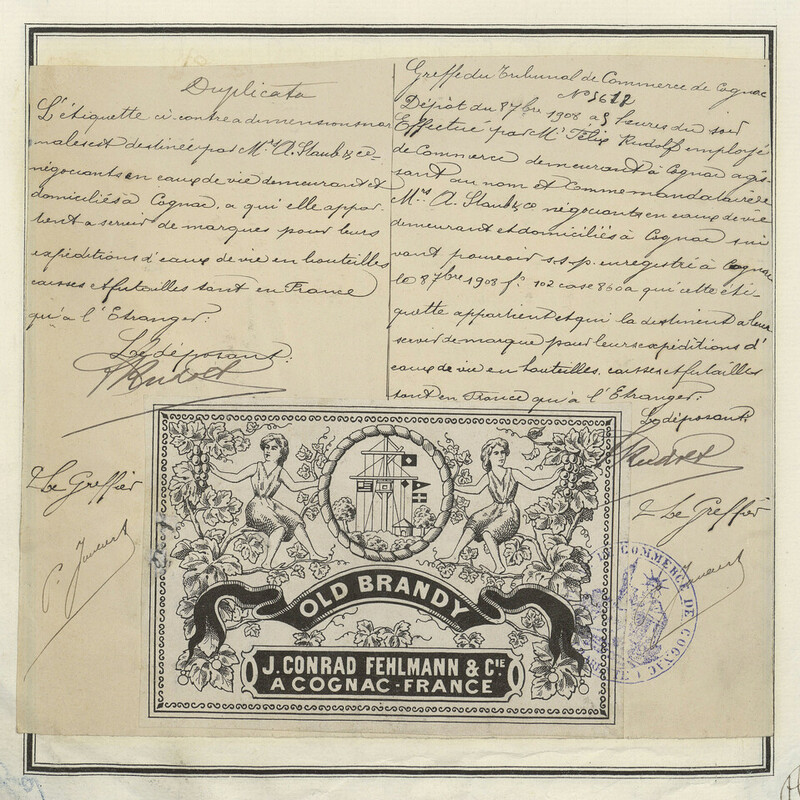 Duplicata
L'étiquette ci-contre a dimensions nor
males est destinée par Mrs A. Staub & Ce
négociants en eaux de vie demeurant et
domiciliés à Cognac, a qui elle appar-
tient a servir de marques pour leurs
expéditions d'eaux de vie en bouteilles
caisses et futailles tant en France
qu'à l'Etranger.
Le déposant:
Le Greffier
Greffe du Tribunal de Commerce de Cognac
No 5612
Dépôt du 8 7bre 1908 a 5 heures du soir
Effectué par Mr Félix Rudolf employé
de Commerce demeurant à Cognac agis-
sant au nom et Comme mandataire de
Mrs A. Staub & Ce négociants en eaux de vie
demeurant et domiciliés à Cognac sui
vant pouvoir s.s.p. enregistré à Cognac
le 8 7bre 1908 fo 102 case 860 a qui cette éti-
quette appartient et qui la destinent a leur
servir de marque pour leurs expéditions d'
eaux de vie en bouteilles, caisses et futailles
tant en France qu'à l'Etranger.
Le déposant:
Le Greffier
OLD BRANDY
J. CONRAD FEHLMANN & CIE.
A COGNAC-FRANCE
DE COMMERCE DE COGNAC